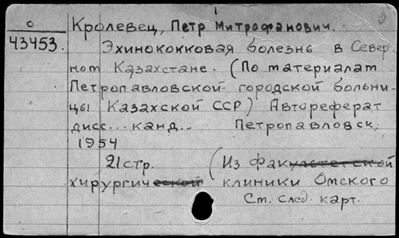 О Кролевец, Петр Митрофанович.
43453. Эхинококковая болезнь в Север
ном Казахстане. (По материалам
Петропавловской городской больни-
цы Казахской ССР) Автореферат
дисс... канд... Петропавловск,
1954
21стр. (Из факультетской
хирургической клиники Омского
См. след. карт.